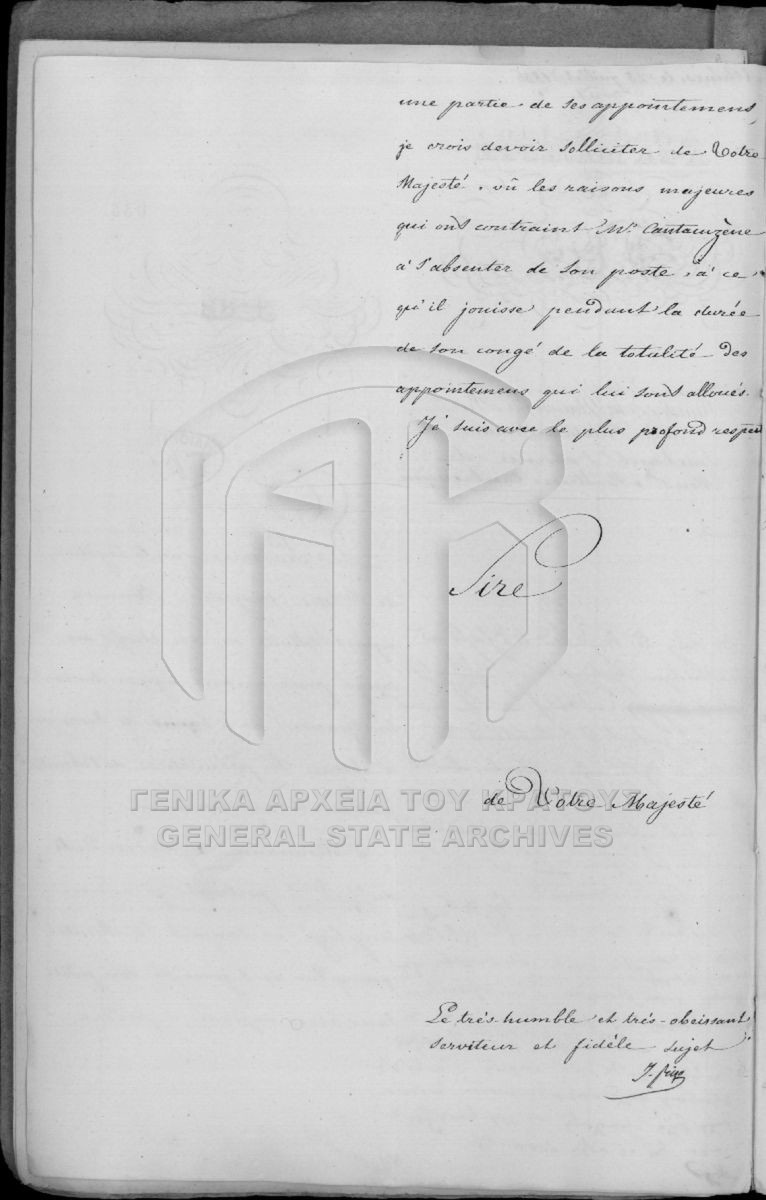 une partie de ses appointemens,
je crois devoir solliciter de Votre
Majesté, vû les raisons majeures
qui ont contraint Mr. Cantacuzène
à s'absenter de son poste, à ce
qu'il jouisse pendant la durée
de son congé de la totalité des
appointemens qui lui sont alloués.
Je suis avec le plus profond respect
Sire
de Votre Majesté
ΓΕΝΙΚΑ ΑΡΧΕΙΑ ΤΟΥ ΚΡΑΤΟΥΣ
GENERAL STATE ARCHIVES
Le très-humble et très-obeissant
serviteur et fidèle sujet